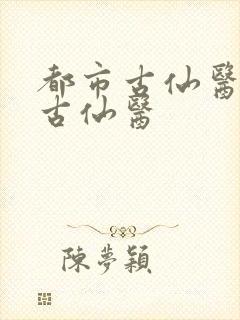 都市古仙醫
古仙醫
陳夢穎